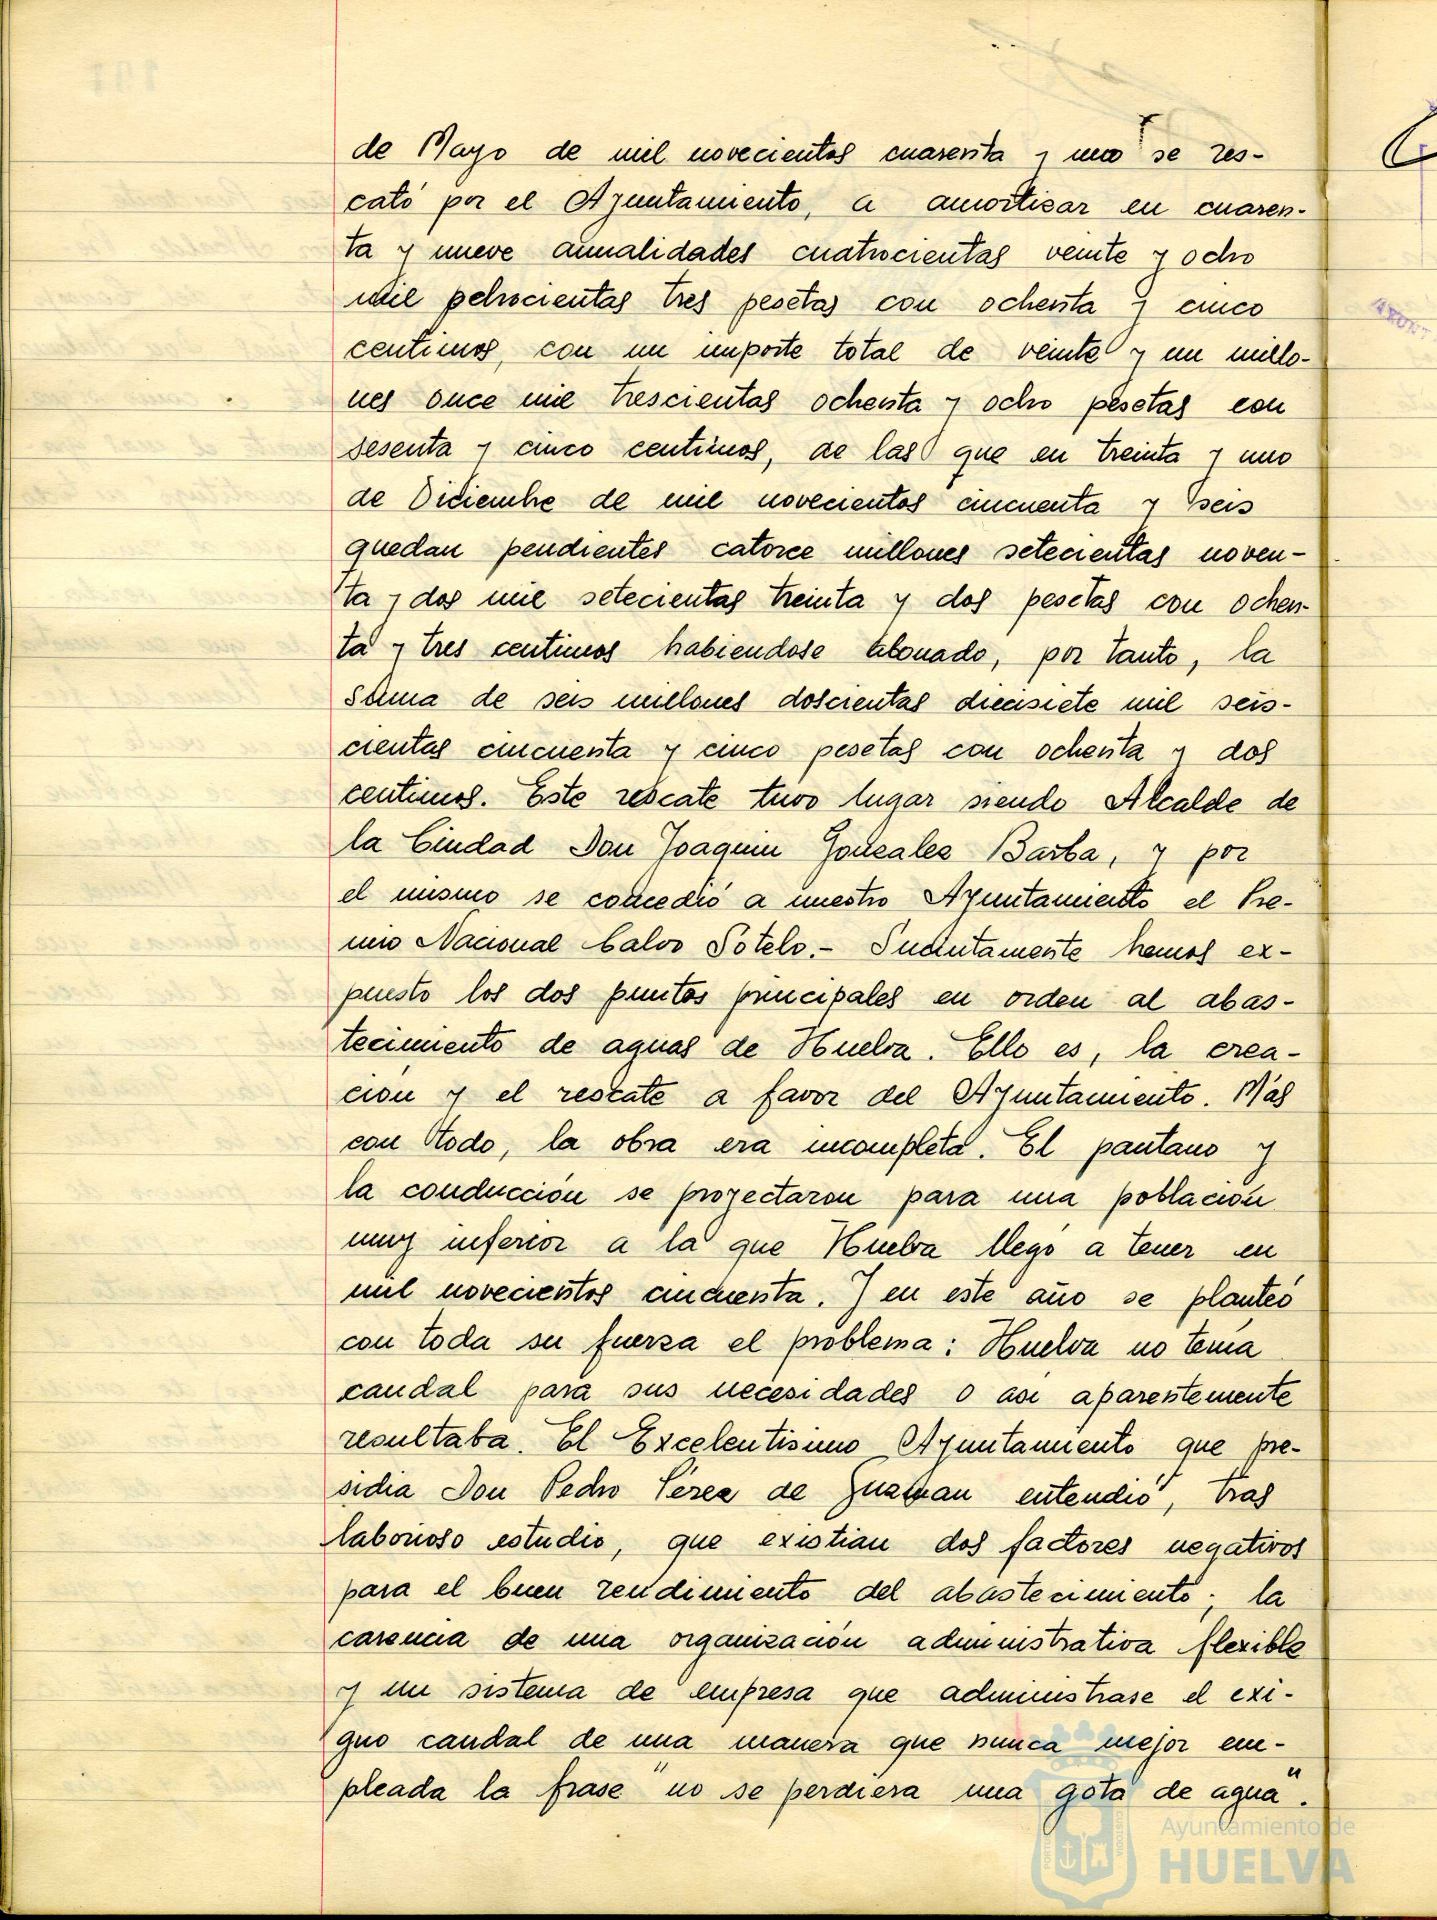 de Mayo de mil novecientos cuarenta y uno se res-
cató por el Ayuntamiento, a amortizar en cuaren-
ta y nueve anualidades cuatrocientas veinte y ocho
mil ochocientas tres pesetas con ochenta y cinco
centimos, con un importe total de veinte y un millo-
nes once mil trescientas ochenta y ocho pesetas con
sesenta y cinco centimos, de las que en treinta y uno
de Diciembre de mil novecientos cincuenta y seis
quedan pendientes catorce millones setecientas noven-
ta y dos mil setecientas treinta y dos pesetas con ochen-
ta y tres centimos habiendose abonado, por tanto, la
suma de seis millones doscientas diecisiete mil seis-
cientas cincuenta y cinco pesetas con ochenta y dos
centimos. Este rescate tuvo lugar siendo Alcalde de
la Ciudad Don Joaquin Gonzalez Barba, y por
el mismo se concedió a nuestro Ayuntamiento el Pre-
mio Nacional Calvo Sotelo.- Sucintamente hemos ex-
puesto los dos puntos principales en orden al abas-
tecimiento de aguas de Huelva. Ello es, la crea-
ción y el rescate a favor del Ayuntamiento. Más
con todo, la obra era incompleta. El pantano y
la conducción se proyectaron para una población
muy inferior a la que Huelva llegó a tener en
mil novecientos cincuenta. Y en este año se planteó
con toda su fuerza el problema: Huelva no tenia
caudal para sus necesidades o asi aparentemente
resultaba. El Excelentisimo Ayuntamiento que pre-
sidia Don Pedro Pérez de Guzman entendió, tras
laborioso estudio, que existian dos factores negativos
para el buen rendimiento del abastecimiento; la
carencia de una organización administrativa flexible
y un sistema de empresa que administrase el exi-
guo caudal de una manera que nunca mejor em-
pleada la frase "no se perdiera una gota de agua".
Ayuntamiento de
HUELVA